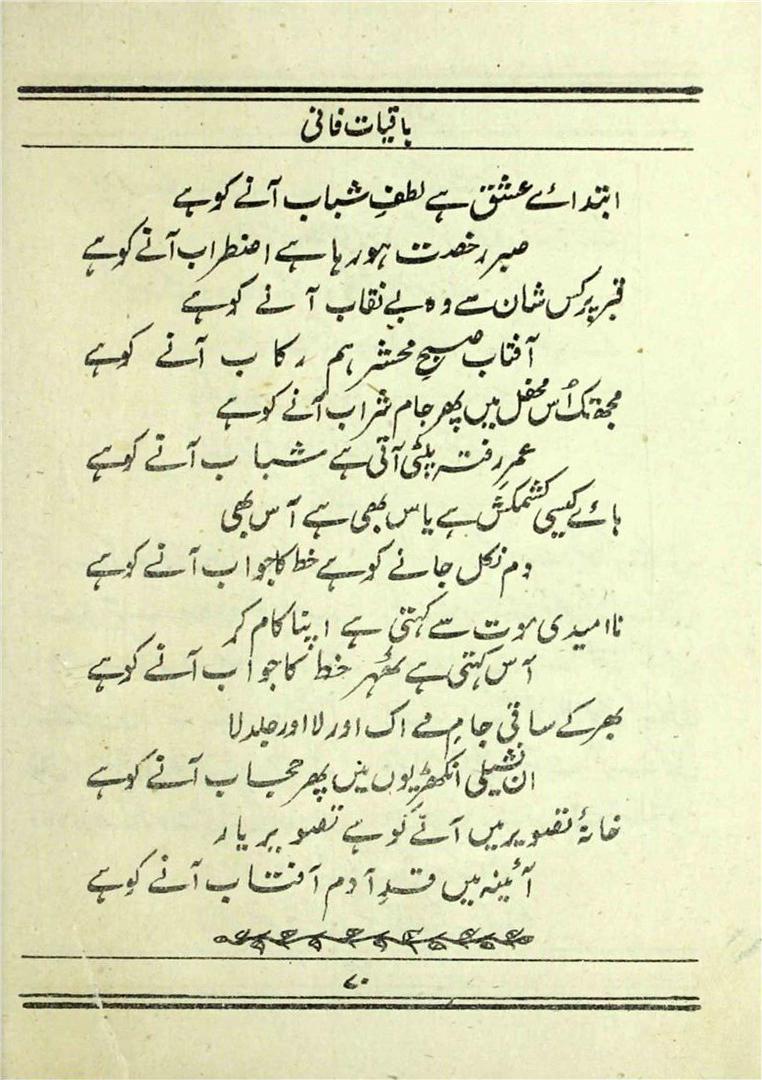 باقیات فانی
ابتدائے عشق ہے لطفِ شباب آنے کو ہے
صبر رخصت ہو رہا ہے اضطراب آنے کو ہے
قبر پر کس شان سے وہ بے نقاب آنے کو ہے
آفتاب صبحِ محشر ہم رکاب آنے کو ہے
مجھ تک اُس محفل میں پھر جام شراب آنے کو ہے
عمر رفتہ پلٹی آتی ہے شباب آنے کو ہے
ہائے کیسی کشمکش ہے یاس بھی ہے آس بھی
دم نکل جانے کو ہے خط کا جواب آنے کو ہے
ناامیدی موت سے کہتی ہے اپنا کام کر
آس کہتی ہے ٹھہر خط کا جواب آنے کو ہے
بھر کے ساقی جامِ مے اک اور لا اور جلد لا
ان نشیلی انکھڑیوں میں پھر حجاب آنے کو ہے
خانۂ تصویر میں آنے کو ہے تصویر یار
آئینہ میں قدِ آدم آفتاب آنے کو ہے
۷۰